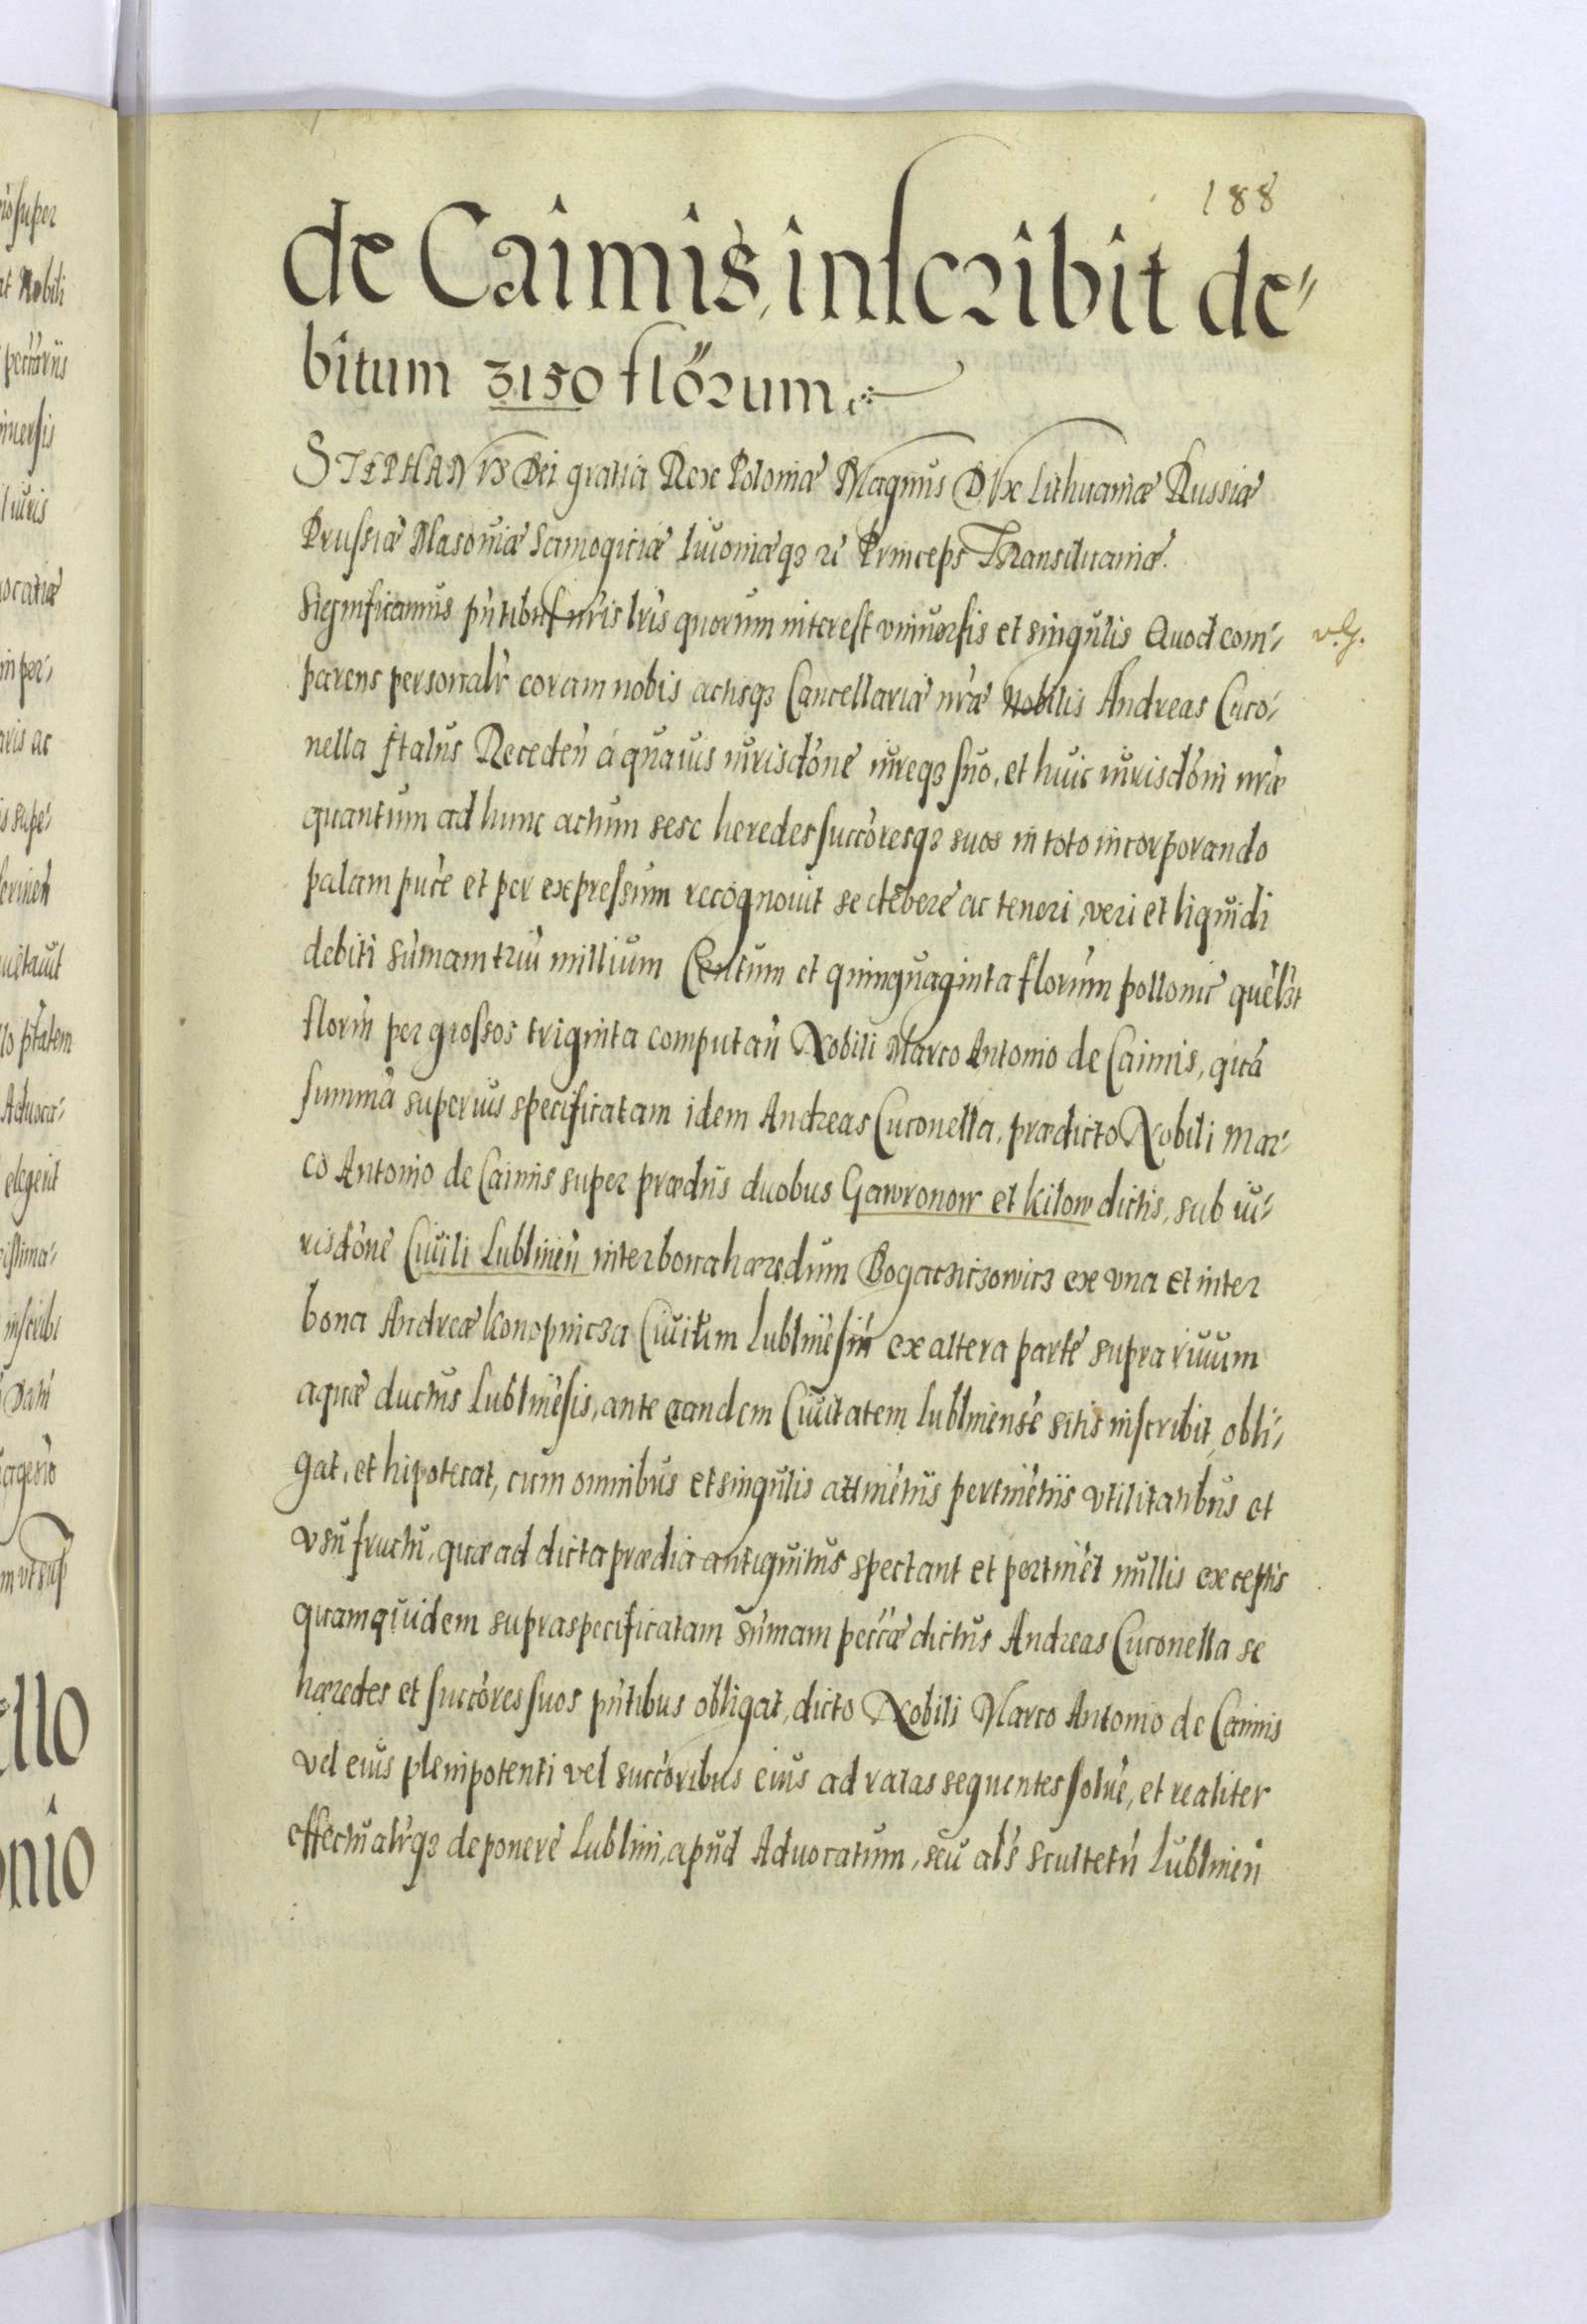 188
de Caimis, inscribit de-
bitum 3150 florum
STEPHANVS Dei gratia Rex Poloniæ Magnus Dux Lithuaniæ Russiæ
Prussiæ Masoviæ Samogitiæ Livoniæqꝫ Princeps Transilvaniæ.
Significamus pñtibus nr̃is lr̃is quorum interest vniuersis et singulis Quod com-
parens personalr̃ coram nobis actisqꝫ Cancellariæ nr̃æ Nobilis Andreas Cuco-
nella Italus Receden̄ á quauis iurisdõne iureqꝫ suo, et huic iurisdõni nr̃æ
quantum ad hunc actum sese heredes succõresqꝫ suos in toto incorporando
palam pure et per expressum recognouit se debere ac teneri, veri et liquidi
debiti sum̃am triũ millium Centum et quinquaginta florum pollonic̃ quel̃ꝫt
florin̄ per grossos triginta computan̄ Nobili Marco Antonio de Caimis, qua
summã superius specificatam idem Andreas Cuconella, prædicto Nobili Mar-
co Antonio de Caimis super prædiis duobus Gawronow et Kitow dictis, sub iu-
risdõne Ciuili Lublinen̄ inter bona hæredum Bogacziczowicz ex vna et inter
bona Andreæ Konopnicza Ciuium Lublinẽsiũ ex altera parte supra riuum
aquæ ductus Lublinẽsis, ante eandem Ciuitatem Lublinensẽ sitis inscribit, obli-
gat, et hipotecat, cum omnibus et singulis attinẽtiis pertinẽtiis vtilitatibus et
vsu fructu, quæ ad dicta prædia antiquitus spectant et pertinẽt nullis exceptis
quamquidem supraspecificatam sum̃am pecc̃æ dictus Andreas Cuconella se
hæredes et succõres suos pñtibus obligat, dicto Nobili Marco Antonio de Caimis
vel eius plenipotenti vel succõribus eius ad ratas sequentes soluẽ, et realiter
effectualr̃qꝫ deponere Lublini, apud Aduocatum, seu al̃s scultetũ Lublinen̄